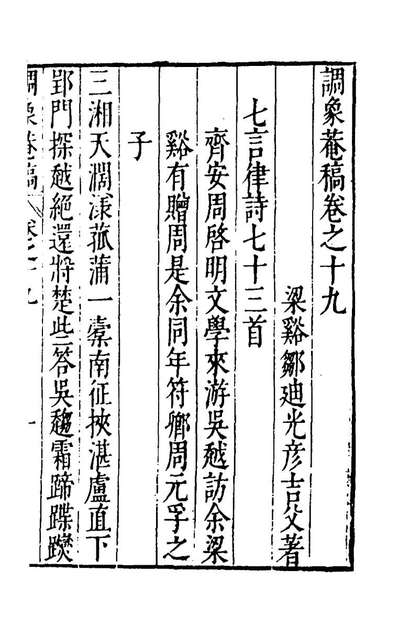 調象菴稿卷之十九
梁谿鄒迪光彥吉父著
七言律詩七十三首
齊安周啓明文學來游吳越訪余梁
谿有贈周是余同年符卿周元孚之
子
三湘天濶漾菰蒲一橐南征挾湛盧直下
郢門探越絕還將楚些答吳趨霜蹄蹀躞
調象菴稿 卷之十九 一